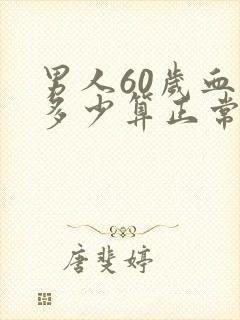 男人60岁血
多少算正常
唐斐婷